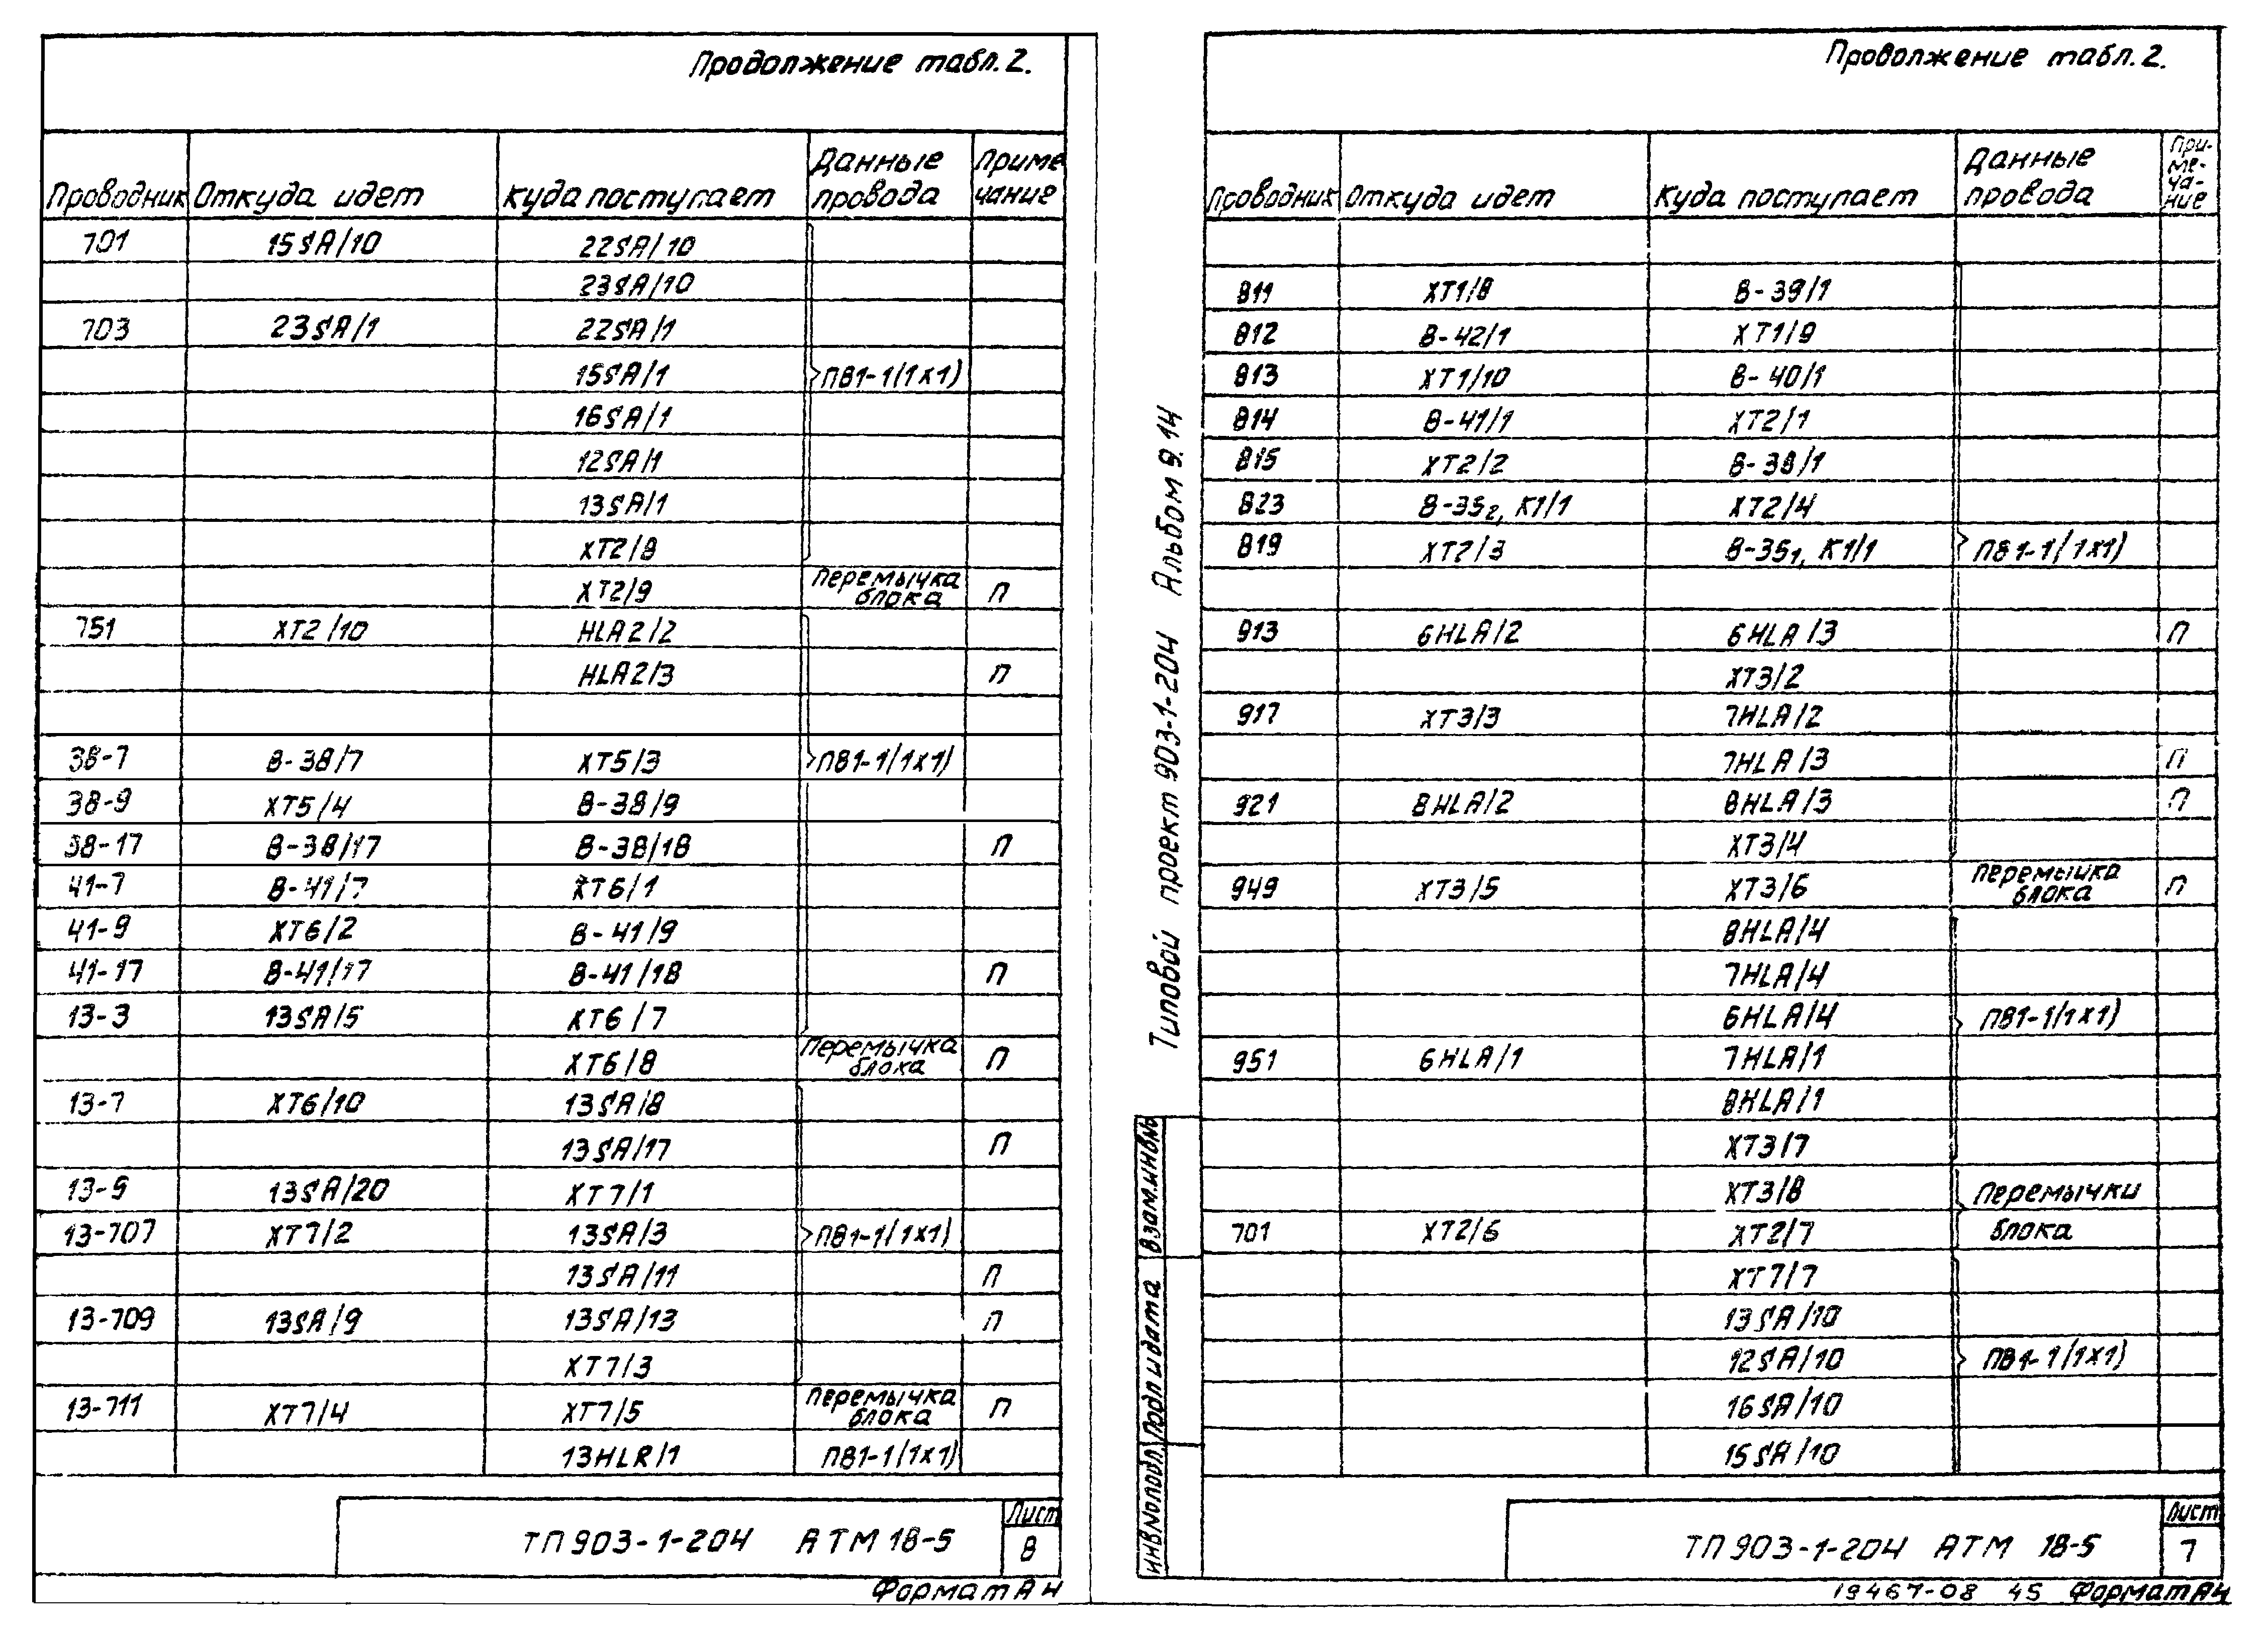 Продолжение табл. 2.
Проводник Откуда идет Куда поступает Данные провода Примечание
701 15SA/10 22SA/10
23SA/10
703 23SA/1 22SA/1
15SA/1 ПВ1-1/(1х1)
16SA/1
12SA/1
13SA/1
XT2/8
XT2/9 перемычка блока П
751 XT2/10 HLA2/2
HLA2/3 П
38-7 В-38/7 XT5/3 ПВ1-1/(1х1)
38-9 XT5/4 В-38/9
38-17 В-38/17 В-38/18 П
41-7 В-41/7 XT6/1
41-9 XT6/2 В-41/9
41-17 В-41/17 В-41/18 П
13-3 13SA/5 XT6/7
XT6/8 Перемычка блока П
13-7 XT6/10 13SA/8
13SA/17 П
13-9 13SA/20 XT7/1
13-707 XT7/2 13SA/3 ПВ1-1/(1х1)
13SA/11 П
13-709 13SA/9 13SA/13 П
XT7/3
13-711 XT7/4 XT7/5 перемычка блока П
13HLR/1 ПВ1-1/(1х1)
ТП 903-1-204 АТМ 18-5
Лист
8
Формат А4
Продолжение табл. 2.
Проводник Откуда идет Куда поступает Данные провода При-ме-ча-ние
811 XT1/8 В-39/1
812 В-42/1 XT1/9
813 XT1/10 В-40/1
814 В-41/1 XT2/1
815 XT2/2 В-38/1
823 В-35₂, К1/1 XT2/4
819 XT2/3 В-35₁, К1/1 ПВ1-1/(1х1)
913 6HLA/2 6HLA/3 П
XT3/2
917 XT3/3 7HLA/2
7HLA/3 П
921 8HLA/2 8HLA/3 П
XT3/4
949 XT3/5 XT3/6 перемычка блока П
8HLA/4
7HLA/4
6HLA/4 ПВ1-1/(1х1)
951 6HLA/1 7HLA/1
8HLA/1
XT3/7
XT3/8 Перемычки
701 XT2/6 XT2/7 блока
XT7/7
13SA/10
12SA/10 ПВ1-1/(1х1)
16SA/10
15SA/10
Типовой проект 903-1-204 Альбом 9.14
Взам.инв.№
Подп и дата
ИНВ№подл.
ТП 903-1-204 АТМ 18-5
Лист
7
19467-08 45 Формат А4